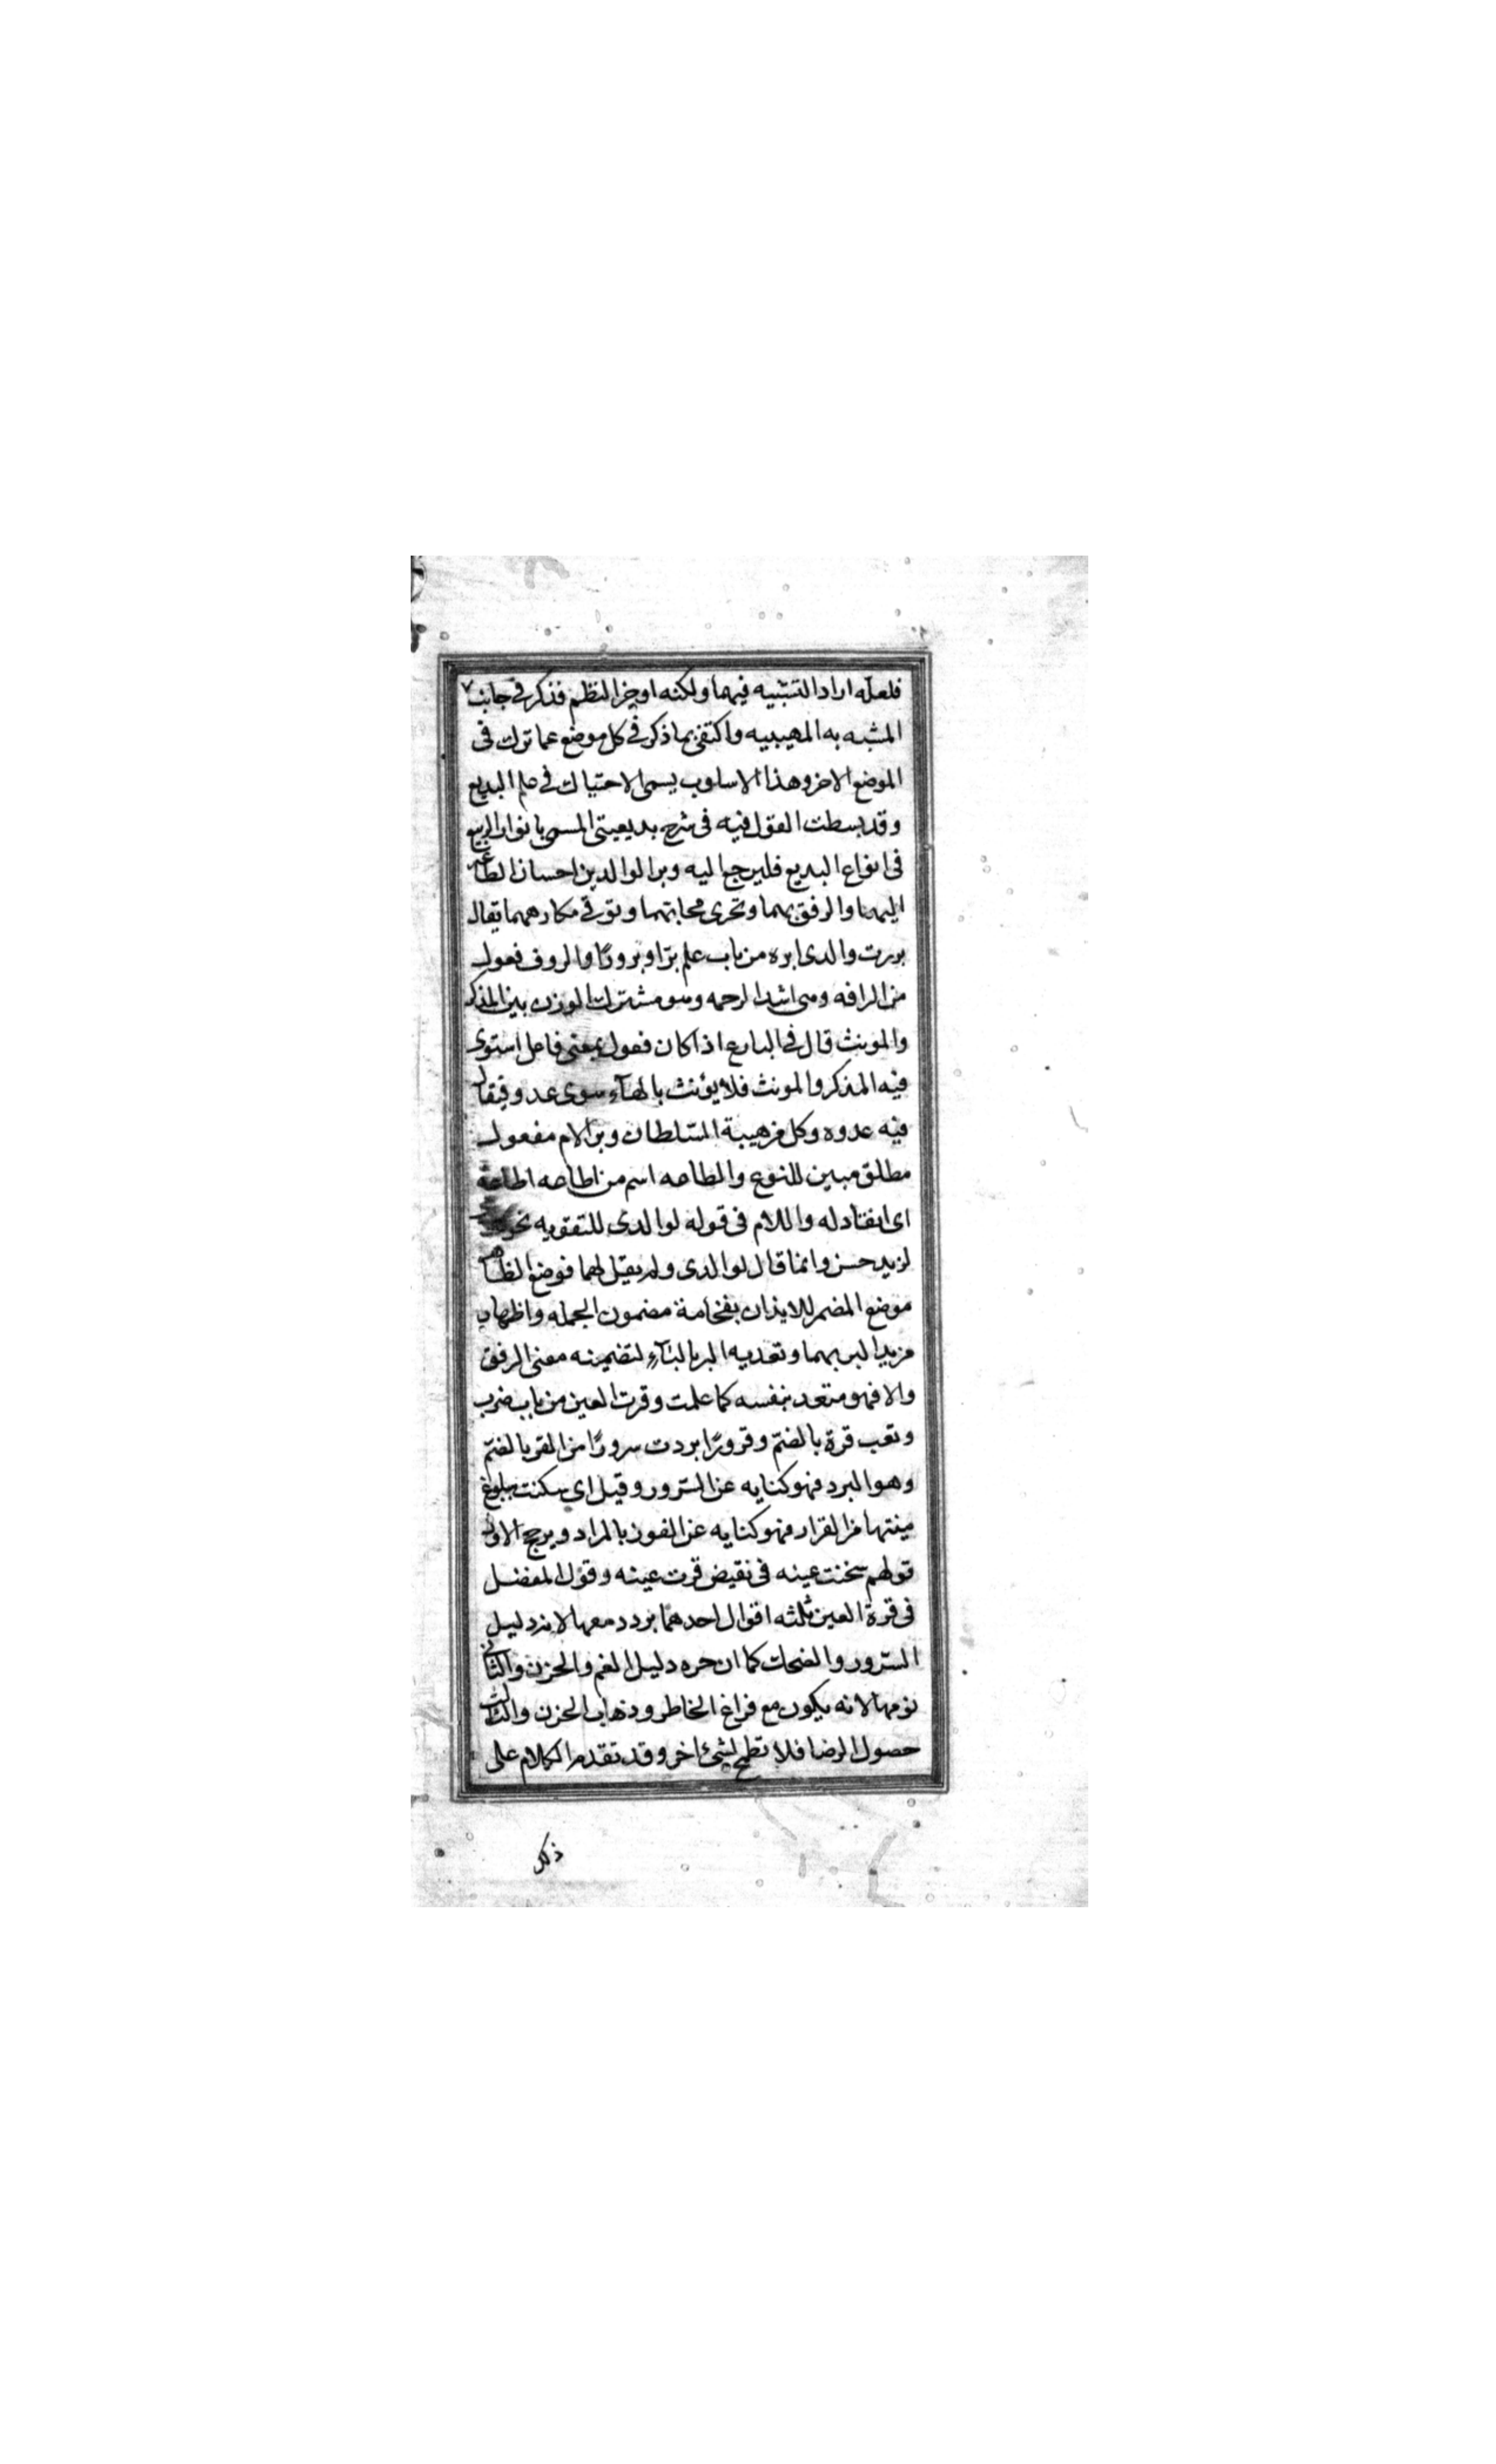 فلعله اراد التشبيه فيهما ولكنه اوجز النظم فذكر في جانب
المشبه به المهيبيه واكتفى بما ذكر في كل موضع عما ترك في
الموضع الاخر وهذا الاسلوب يسمى الاحتباك في علم البديع
وقد بسطت القول فيه في شرح بديعيتي المسمى بانوار الربيع
في انواع البديع فليرجع اليه وبر الوالدين احسان الطاعة
اليهما والرفق بهما وتحرى محابتهما وتوقي مكارههما يقال
بررت والدى ابره من باب علم برّا وبرورًا والروف فعول
من الرافه وهى اشد الرحمه وهو مشترك الوزن بين المذكر
والمونث قال في البارع اذا كان فعول بمعنى فاعل استوى
فيه المذكر والمونث فلا يؤنث بالهآء سوى عدو فيقال
فيه عدوه وكل من هيبة السّلطان وبر الام مفعول
مطلق مبين للنوع والطاعه اسم من اطاعه اطاعة
اى انقاد له واللام في قوله لوالدى للتقويه نحو
لزيد حسن وانما قال لوالدى ولم يقل لهما فوضع الظاهر
موضع المضمر للايذان بفخامة مضمون الجمله واظهار
مزيد البر بهما وتعديه البر بالبآء لتضمينه معنى الرفق
والا فهو متعد بنفسه كما علمت وقرت العين من باب ضرب
وتعب قرة بالضمّ وقرورًا بردت سرورًا من القر بالضمّ
وهو البرد فهو كنايه عن السّرور وقيل اى سكنت ببلوغ
منيتها من القرار فهو كنايه عن الفوز بالمراد ويرجح الاول
قولهم سخنت عينه في نقيض قرت عينه وقول المفضل
في قرة العين ثلثه اقوال احدهما برد دمعها لانه دليل
السّرور والضحك كما ان حره دليل الغم والحزن والثاني
نومها لانه يكون مع فراغ الخاطر وذهاب الحزن والثالث
حصول الرضا فلا تطمح لشئ اخر وقد تقدم الكلام على
ذكر